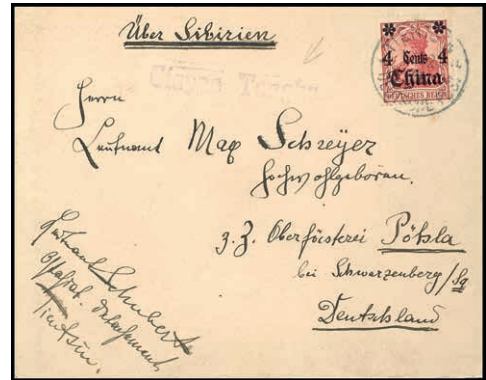 Über Sibirien
4 Cents 4
China
DEUTSCHES REICH
Herrn
Leutnant Max Schreyer
Hochwohlgeboren.
z. Z. Oberförsterei Pöhla
bei Schwarzenberg/Sa
Deutschland
Leutnant Schubert
Ostasiat. Detachement
Tientsin.